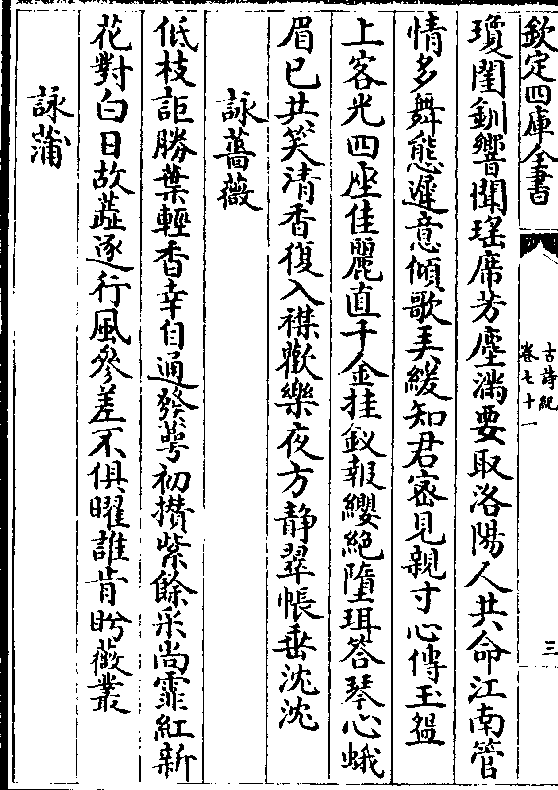 欽定四庫全書
古詩紀
卷七十一
三
瓊閨釧響聞瑤席芳塵滿要取洛陽人共命江南管
情多舞態遲意傾歌弄緩知君密見親寸心傳玉盌
上客光四座佳麗直千金挂釵報纓絶墮珥答琴心蛾
眉已共笑清香復入襟歡樂夜方靜翠帳垂沈沈
詠薔薇
低枝詎勝葉輕香幸自通發萼初攢紫餘采尚霏紅新
花對白日故蕋逐行風參差不俱曜誰肯盻薇叢
詠蒲